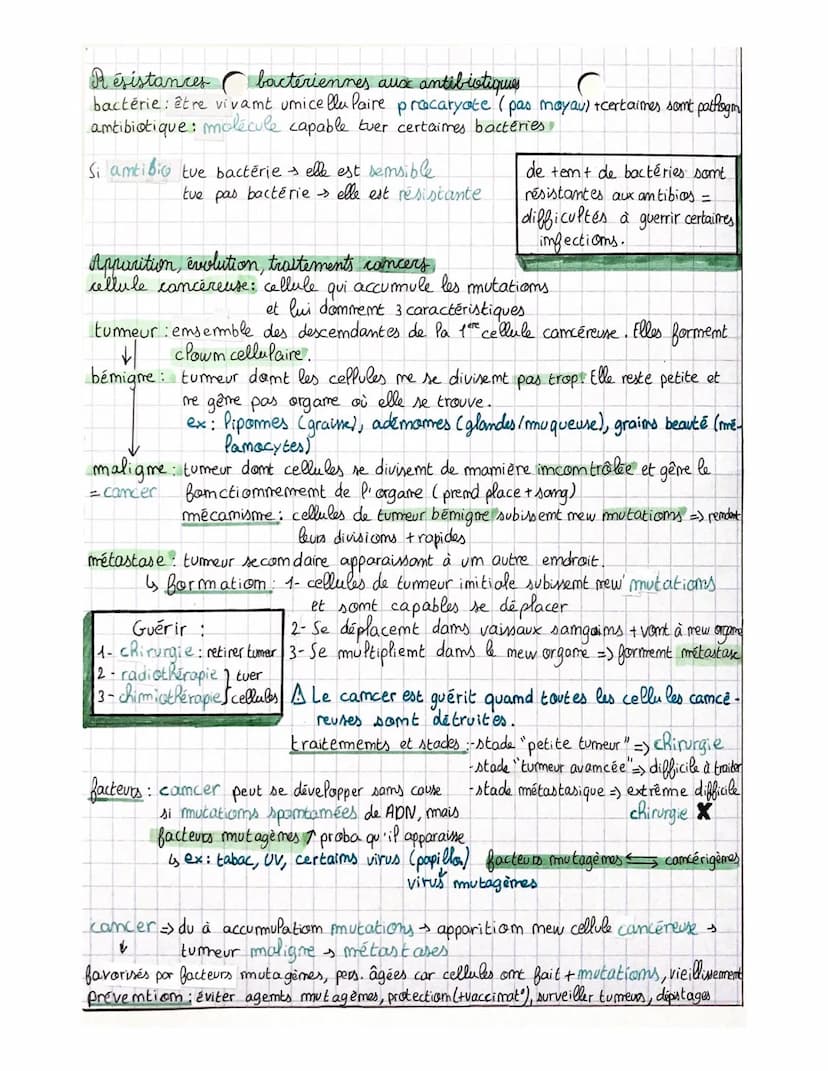 Résistances bactériennes aux antibiotiques
bactérie : être vivant unicellulaire procaryote (pas noyau) + certaines sont pathogn
antibiotique : molécule capable tuer certaines bactéries
Si antibio tue bactérie → elle est sensible
tue pas bactérie → elle est résistante
de + en + de bactéries sont
résistantes aux antibios =
difficultés à guerrir certaines
infections.
Apparition, évolution, traitements cancers
cellule cancéreuse : cellule qui accumule les mutations
et lui donnent 3 caractéristiques
tumeur : ensemble des descendantes de la 1ère cellule cancéreuse. Elles forment
clown cellulaire.
bénigne : tumeur dont les cellules ne se divisent pas trop. Elle reste petite et
ne gêne pas organe où elle se trouve.
ex : lipomes (graisse), adénomes (glandes/muqueuse), grains beauté (mé-
lanocytes)
maligne : tumeur dont cellules se divisent de manière incontrôlée et gêne le
= cancer fonctionnement de l'organe (prend place + sang)
mécanisme : cellules de tumeur bénigne subissent new mutations => rendent
leurs divisions + rapides
métastase : tumeur secondaire apparaissant à un autre endroit.
↳ formation : 1- cellules de tumeur initiale subissent new mutations
et sont capables se déplacer
2- Se déplacent dans vaissaux sanguins + vont à new organe
3- Se multiplient dans le new organe => forment métastase
Guérir :
1- chirurgie : retirer tumeur
2- radiothérapie } tuer
3- chimiothérapie } cellules
⚠ Le cancer est guérit quand toutes les cellules cancé-
reuses sont détruites.
traitements et stades : - stade "petite tumeur" => chirurgie
- stade "tumeur avancée" => difficile à traiter
- stade métastasique => extrême difficile
chirurgie ✗
facteurs : cancer peut se développer sans cause
si mutations spontanées de ADN, mais
facteurs mutagènes ↑ proba qu'il apparaisse
↳ ex : tabac, UV, certains virus (papillo)
virus mutagènes
facteurs mutagènes ⇆ cancérigènes
cancer => du à accumulation mutations → apparition new cellule cancéreuse →
↓ tumeur maligne → métastases
favorisés par facteurs mutagènes, pers. âgées car cellules ont fait + mutations, vieillissement
prévention : éviter agents mutagènes, protection (+vaccinat°), surveiller tumeurs, dépistages